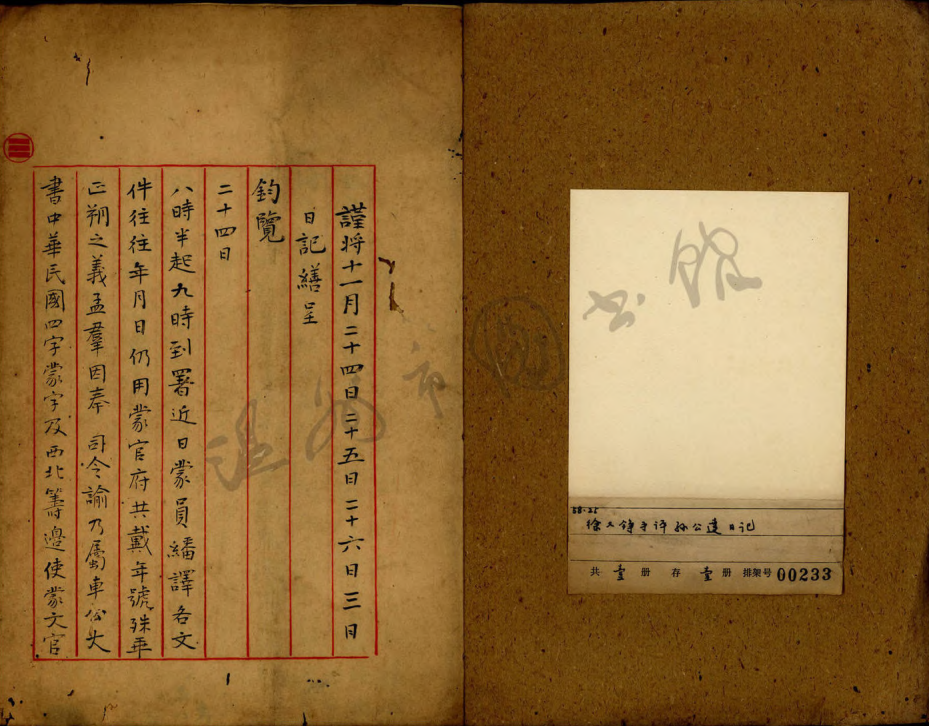 謹将十一月二十四日二十五日二十六日三日
日記繕呈
鈞覽
二十四日
八時半起九時到署近日蒙員繙譯各文
件往往年月日仍用蒙官府共戴年號殊乖
正朔之義孟羣因奉 司令諭乃屬車公大
書中華民國四字蒙字及西北籌邊使蒙文官
温州市图書館
38.25
徐 铮 许 孙公达日记
共 壹 册 存 壹 册 排架号 00233